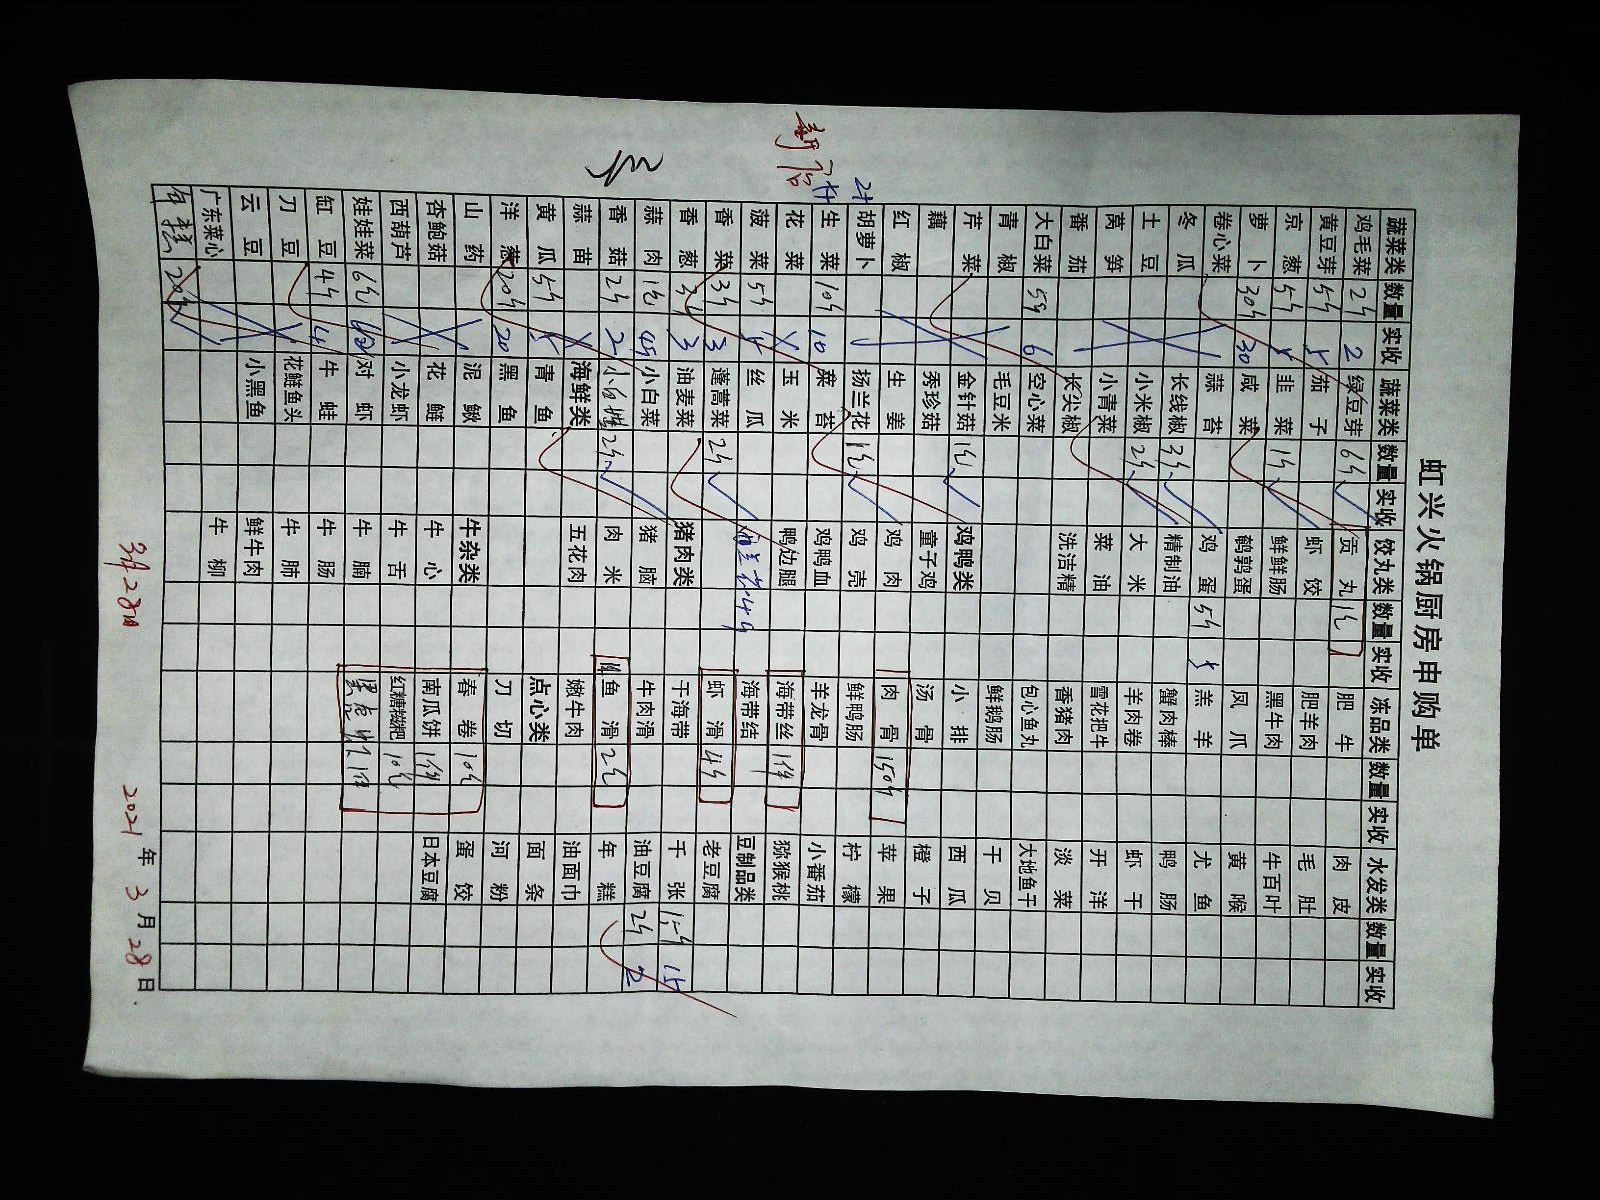 虹兴火锅厨房申购单
蔬菜类 数量 实收 蔬菜类 数量 实收 饺丸类 数量 实收 冻品类 数量 实收 水发类 数量 实收
鸡毛菜 2斤 2 绿豆芽 6斤 贡丸 1包 肥牛 肉皮
黄豆芽 5斤 茄子 虾饺 肥羊肉 毛肚
京葱 5斤 韭菜 1斤 鲜鲜肠 黑牛肉 牛百叶
萝卜 30斤 30 咸菜 鹌鹑蛋 凤爪 黄喉
卷心菜 蒜苔 鸡蛋 5斤 羔羊 尤鱼
冬瓜 长线椒 3斤 精制油 蟹肉棒 鸭肠
土豆 小米椒 2斤 大米 羊肉卷 虾干
莴笋 小青菜 菜油 雪花把牛 开洋
番茄 长尖椒 洗洁精 香猪肉 淡菜
大白菜 5斤 6 空心菜 包心鱼丸 大地鱼干
青椒 毛豆米 鲜鹅肠 干贝
芹菜 金针菇 1包 鸡鸭类 小排 西瓜
藕 秀珍菇 童子鸡 汤骨 橙子
红椒 生姜 鸡肉 肉骨 150斤 苹果
2斤 胡萝卜 扬兰花 1包 鸡壳 鲜鸭肠 柠檬
生菜 10斤 10 菜苔 鸡鸭血 羊龙骨 小番茄
花菜 玉米 鸭边腿 海带丝 1件 猕猴桃
菠菜 5斤 丝瓜 西兰花4斤 海带结 豆制品类
香菜 3斤 3 蓬蒿菜 2斤 虾滑 4斤 老豆腐
香葱 3斤 3 油麦菜 猪肉类 干海带 千张 15
蒜肉 1包 小白菜 猪脑 牛肉滑 油豆腐 2斤 2
香菇 2斤 2 2斤 肉米 鱼滑 2包 年糕
蒜苗 海鲜类 五花肉 嫩牛肉 油面巾
黄瓜 5斤 青鱼 点心类 面条
洋葱 20斤 20 黑鱼 刀切 河粉
山药 泥鳅 牛杂类 春卷 10包 蛋饺
杏鲍菇 花鲢 牛心 南瓜饼 1件 日本豆腐
西葫芦 小龙虾 牛舌 红糖糍粑 10包
娃娃菜 6包 对虾 牛腩
缸豆 4斤 4 牛蛙 牛肠
刀豆 花鲢鱼头 牛肺
云豆 小黑鱼 鲜牛肉
广东菜心 牛柳
20斤
3月28日
2021 年 3 月 28 日